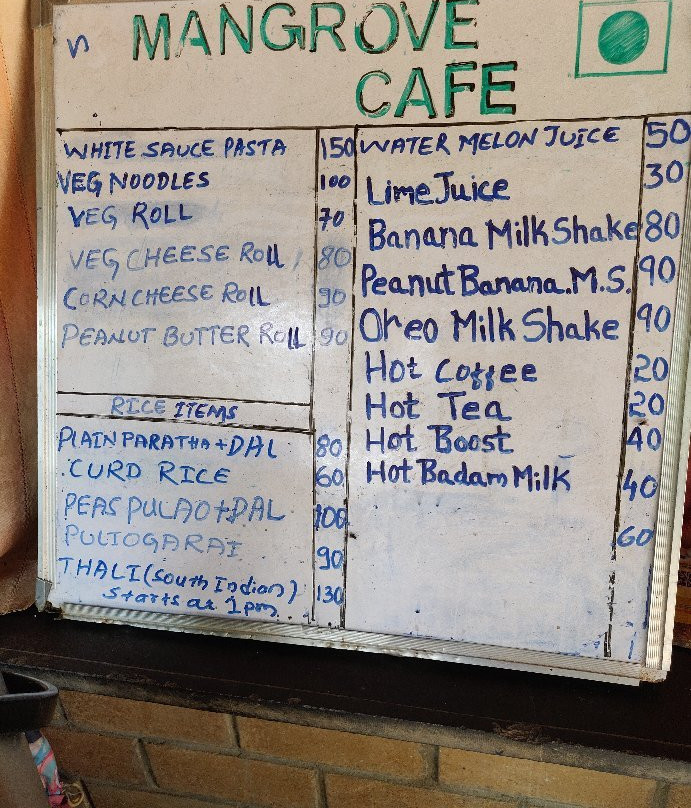 MANGROVE
CAFE
WHITE SAUCE PASTA 150
VEG NOODLES 100
VEG ROLL 70
VEG CHEESE ROLL 80
CORN CHEESE ROLL 90
PEANUT BUTTER ROLL 90
RICE ITEMS
PLAIN PARATHA + DAL 80
CURD RICE 60
PEAS PULAO + DAL 100
PULIOGARAI 90
THALI (South Indian) 130
starts at 1pm
WATER MELON JUICE 50
Lime Juice 30
Banana Milk Shake 80
Peanut Banana.M.S. 90
Oreo Milk Shake 90
Hot Coffee 20
Hot Tea 20
Hot Boost 40
Hot Badam Milk 40
60